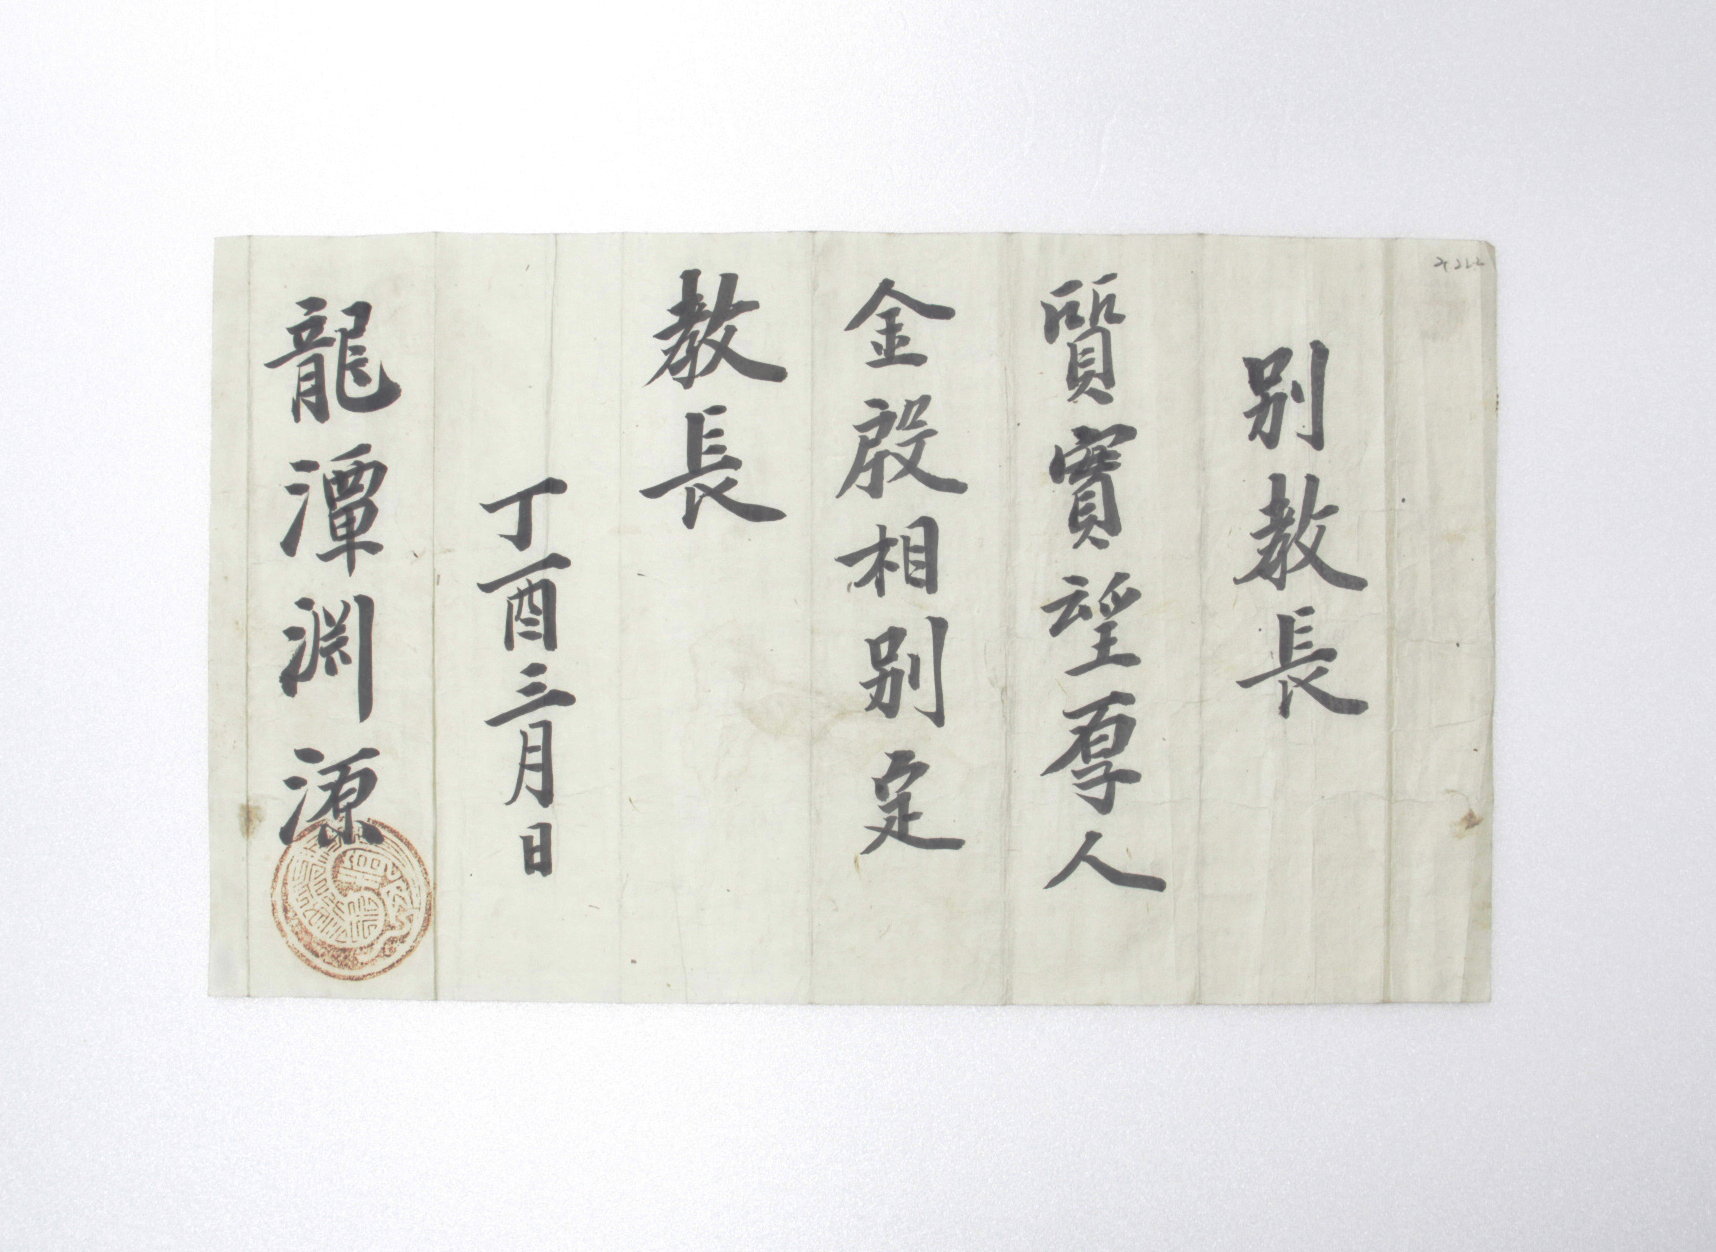 別教長
質實望厚人
金殷相別定
教長
丁酉三月日
龍潭淵源